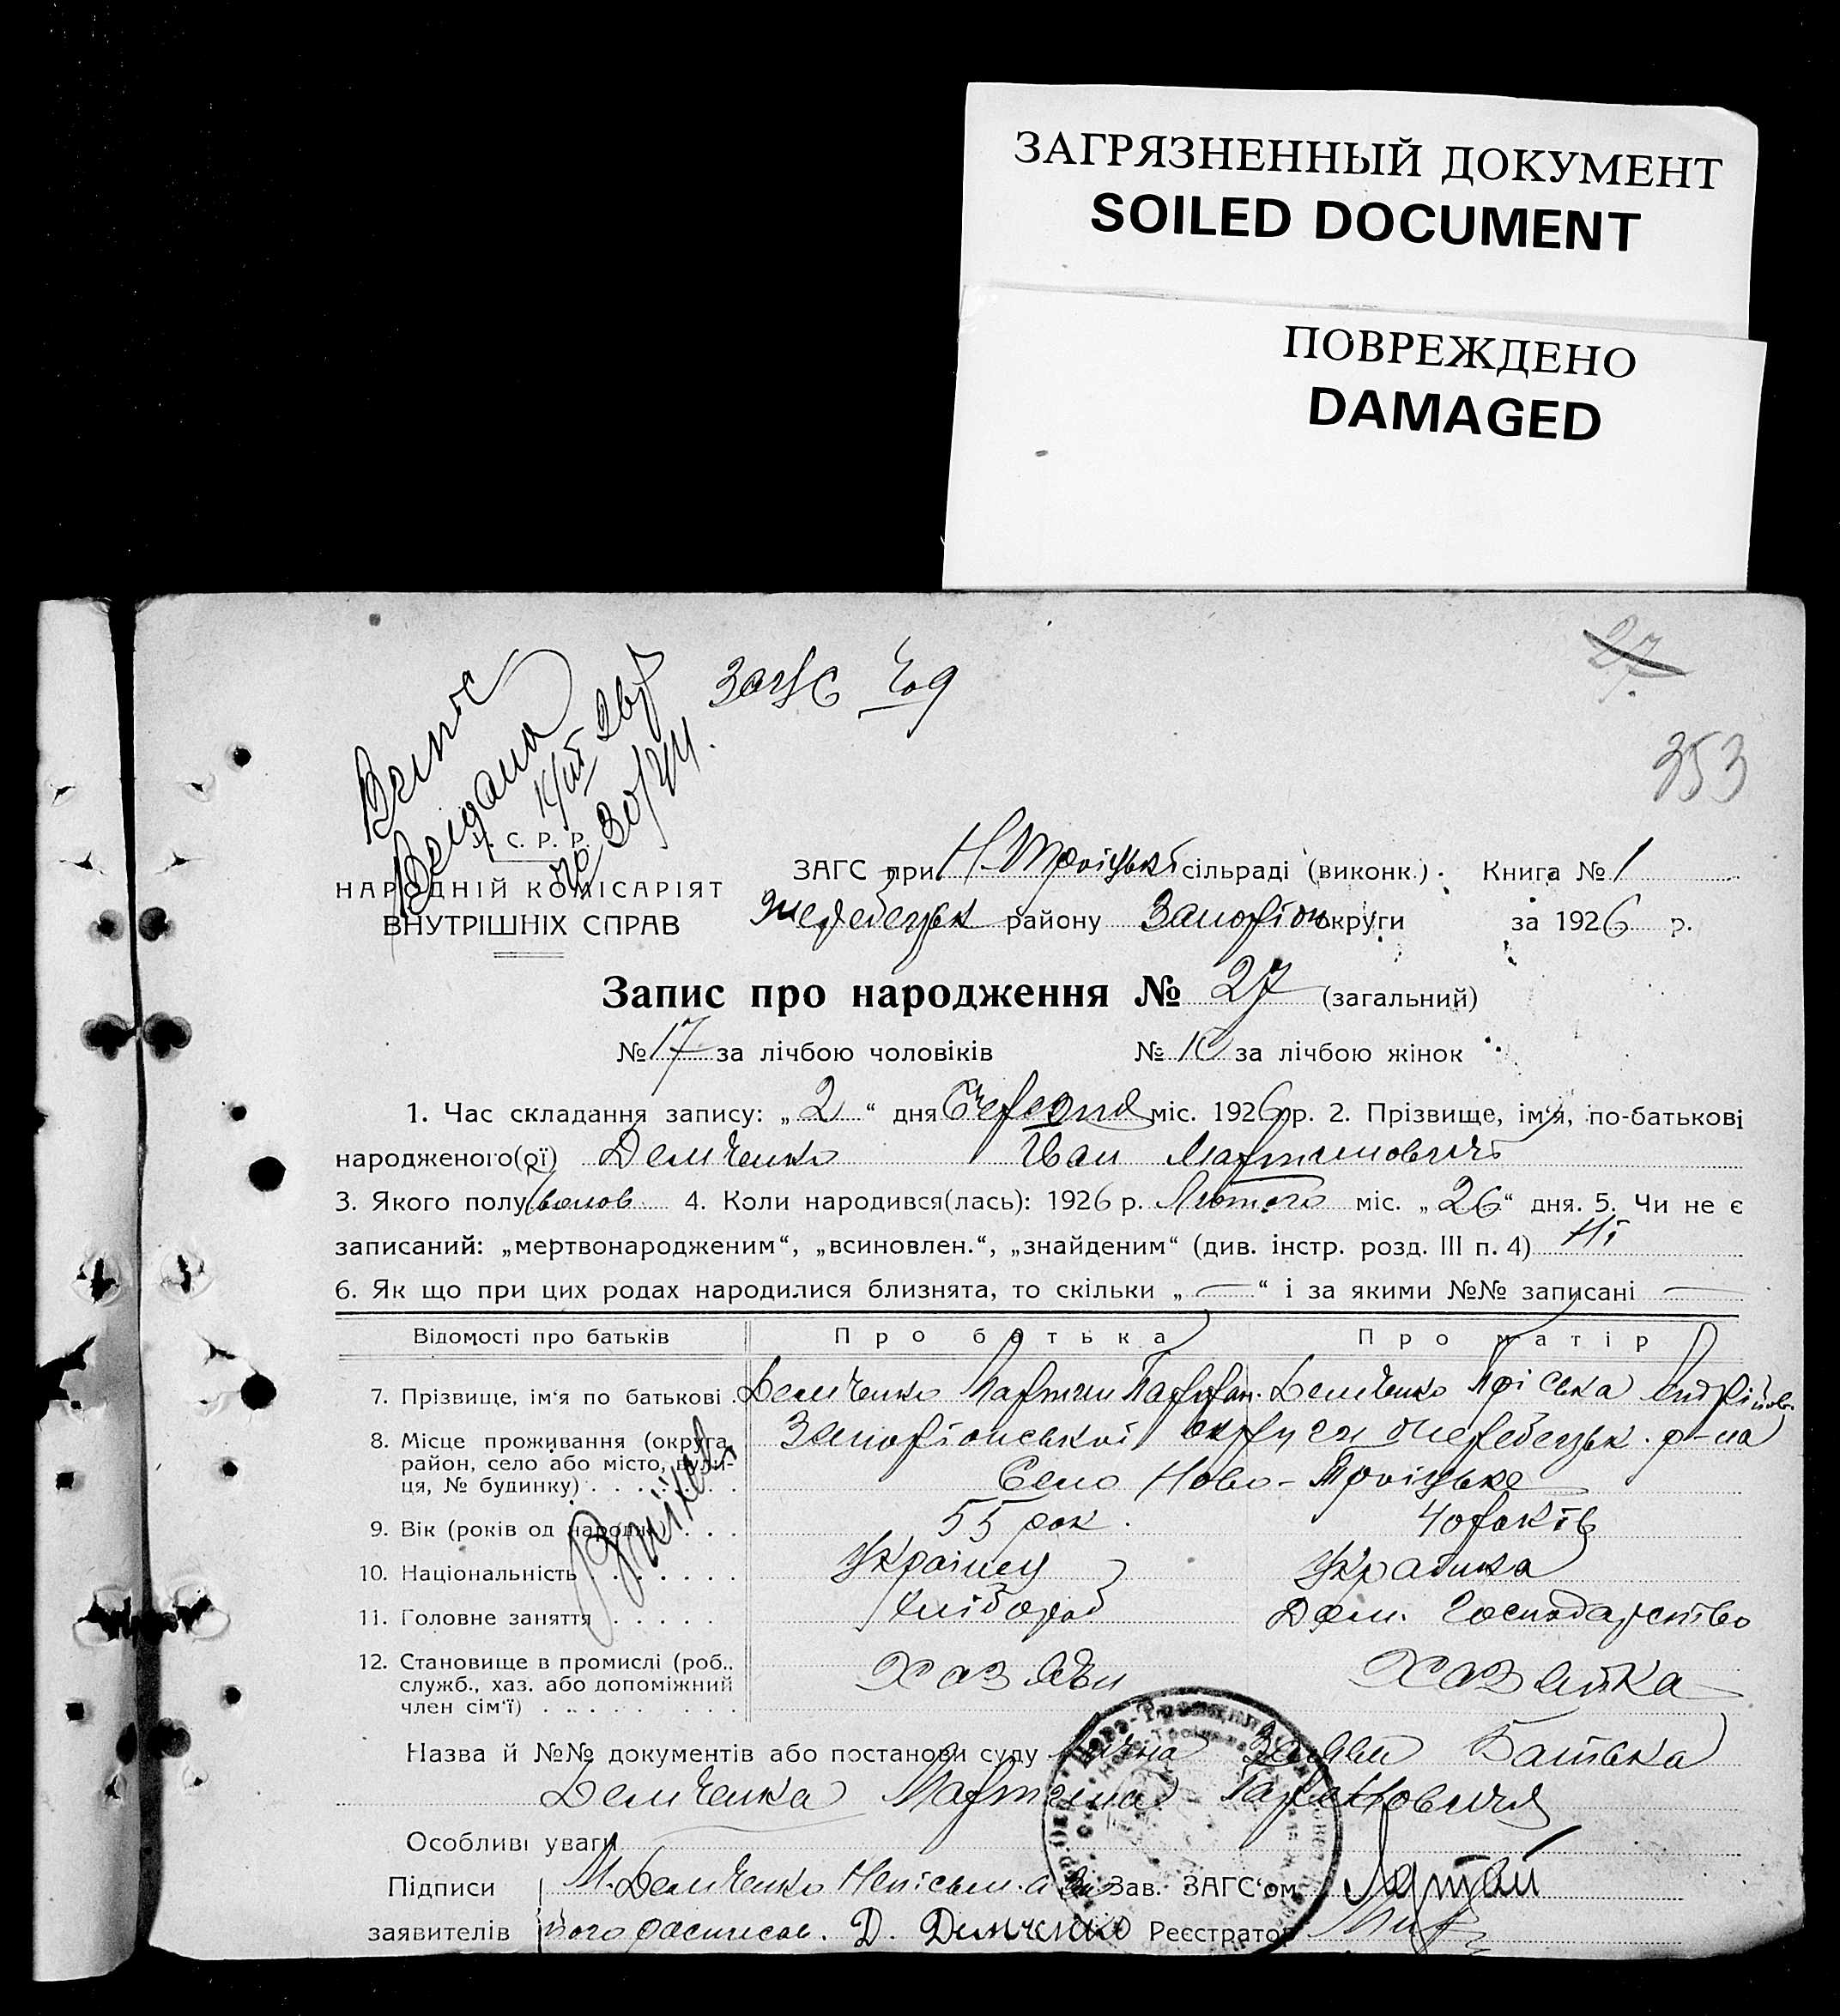 ЗАГРЯЗНЕННЫЙ ДОКУМЕНТ
SOILED DOCUMENT
ПОВРЕЖДЕНО
DAMAGED
27
353
С. Р. Р.
НАРОДНІЙ КОМІСАРІЯТ
ВНУТРІШНІХ СПРАВ
ЗАГС при Н-Троіцькі сільраді (виконк.). Книга № 1
Жеребецьк району Запоріж округи за 1926 р.
Запис про народження № 27 (загальний)
№ 17 за лічбою чоловіків № 10 за лічбою жінок
1. Час складання запису: „ 2 “ дня міс. 1926 р. 2. Прізвище, ім‘я, по-батькові
народженого(ої) Демченко Іван Мартинович
3. Якого полу чолов 4. Коли народився(лась): 1926 р. Лютого міс. „ 26 “ дня. 5. Чи не є
записаний: „мертвонародженим“, „всиновлен.“, „знайденим“ (див. інстр. розд. III п. 4) Ні
6. Як що при цих родах народилися близнята, то скільки „ — “ і за якими №№ записані —
Відомості про батьків Про батька Про матір
7. Прізвище, ім‘я по батькові Демченко Мартин Демченко Пріська Андрійов.
8. Місце проживання (округа, Запоріонської округи Жеребецьк. р-на
район, село або місто, вули-
ця, № будинку) Село Ново-Троіцьке
9. Вік (років од народж. 55 рок. 40 років
10. Національність Украінец Украінка
11. Головне заняття Хлібороб Дом. Господарство
12. Становище в промислі (роб.,
служб., хаз. або допоміжний
член сім‘ї) Хазяїн Хазяйка
Назва й №№ документів або постанови суду Лична Заява Батька
Демченка Мартина
Особливі уваги
Підписи М. Демченко Неписьм. а за Зав. ЗАГС‘ом
заявителів його росписов. Д. Демченко Реєстратор